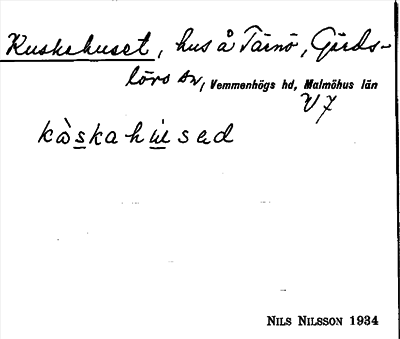 Kuskahuset, hus å Tärnö, Gärds-
lövs sn, Vemmenhögs hd, Malmöhus län
V 7
kòskahúsəd
NILS NILSSON 1934